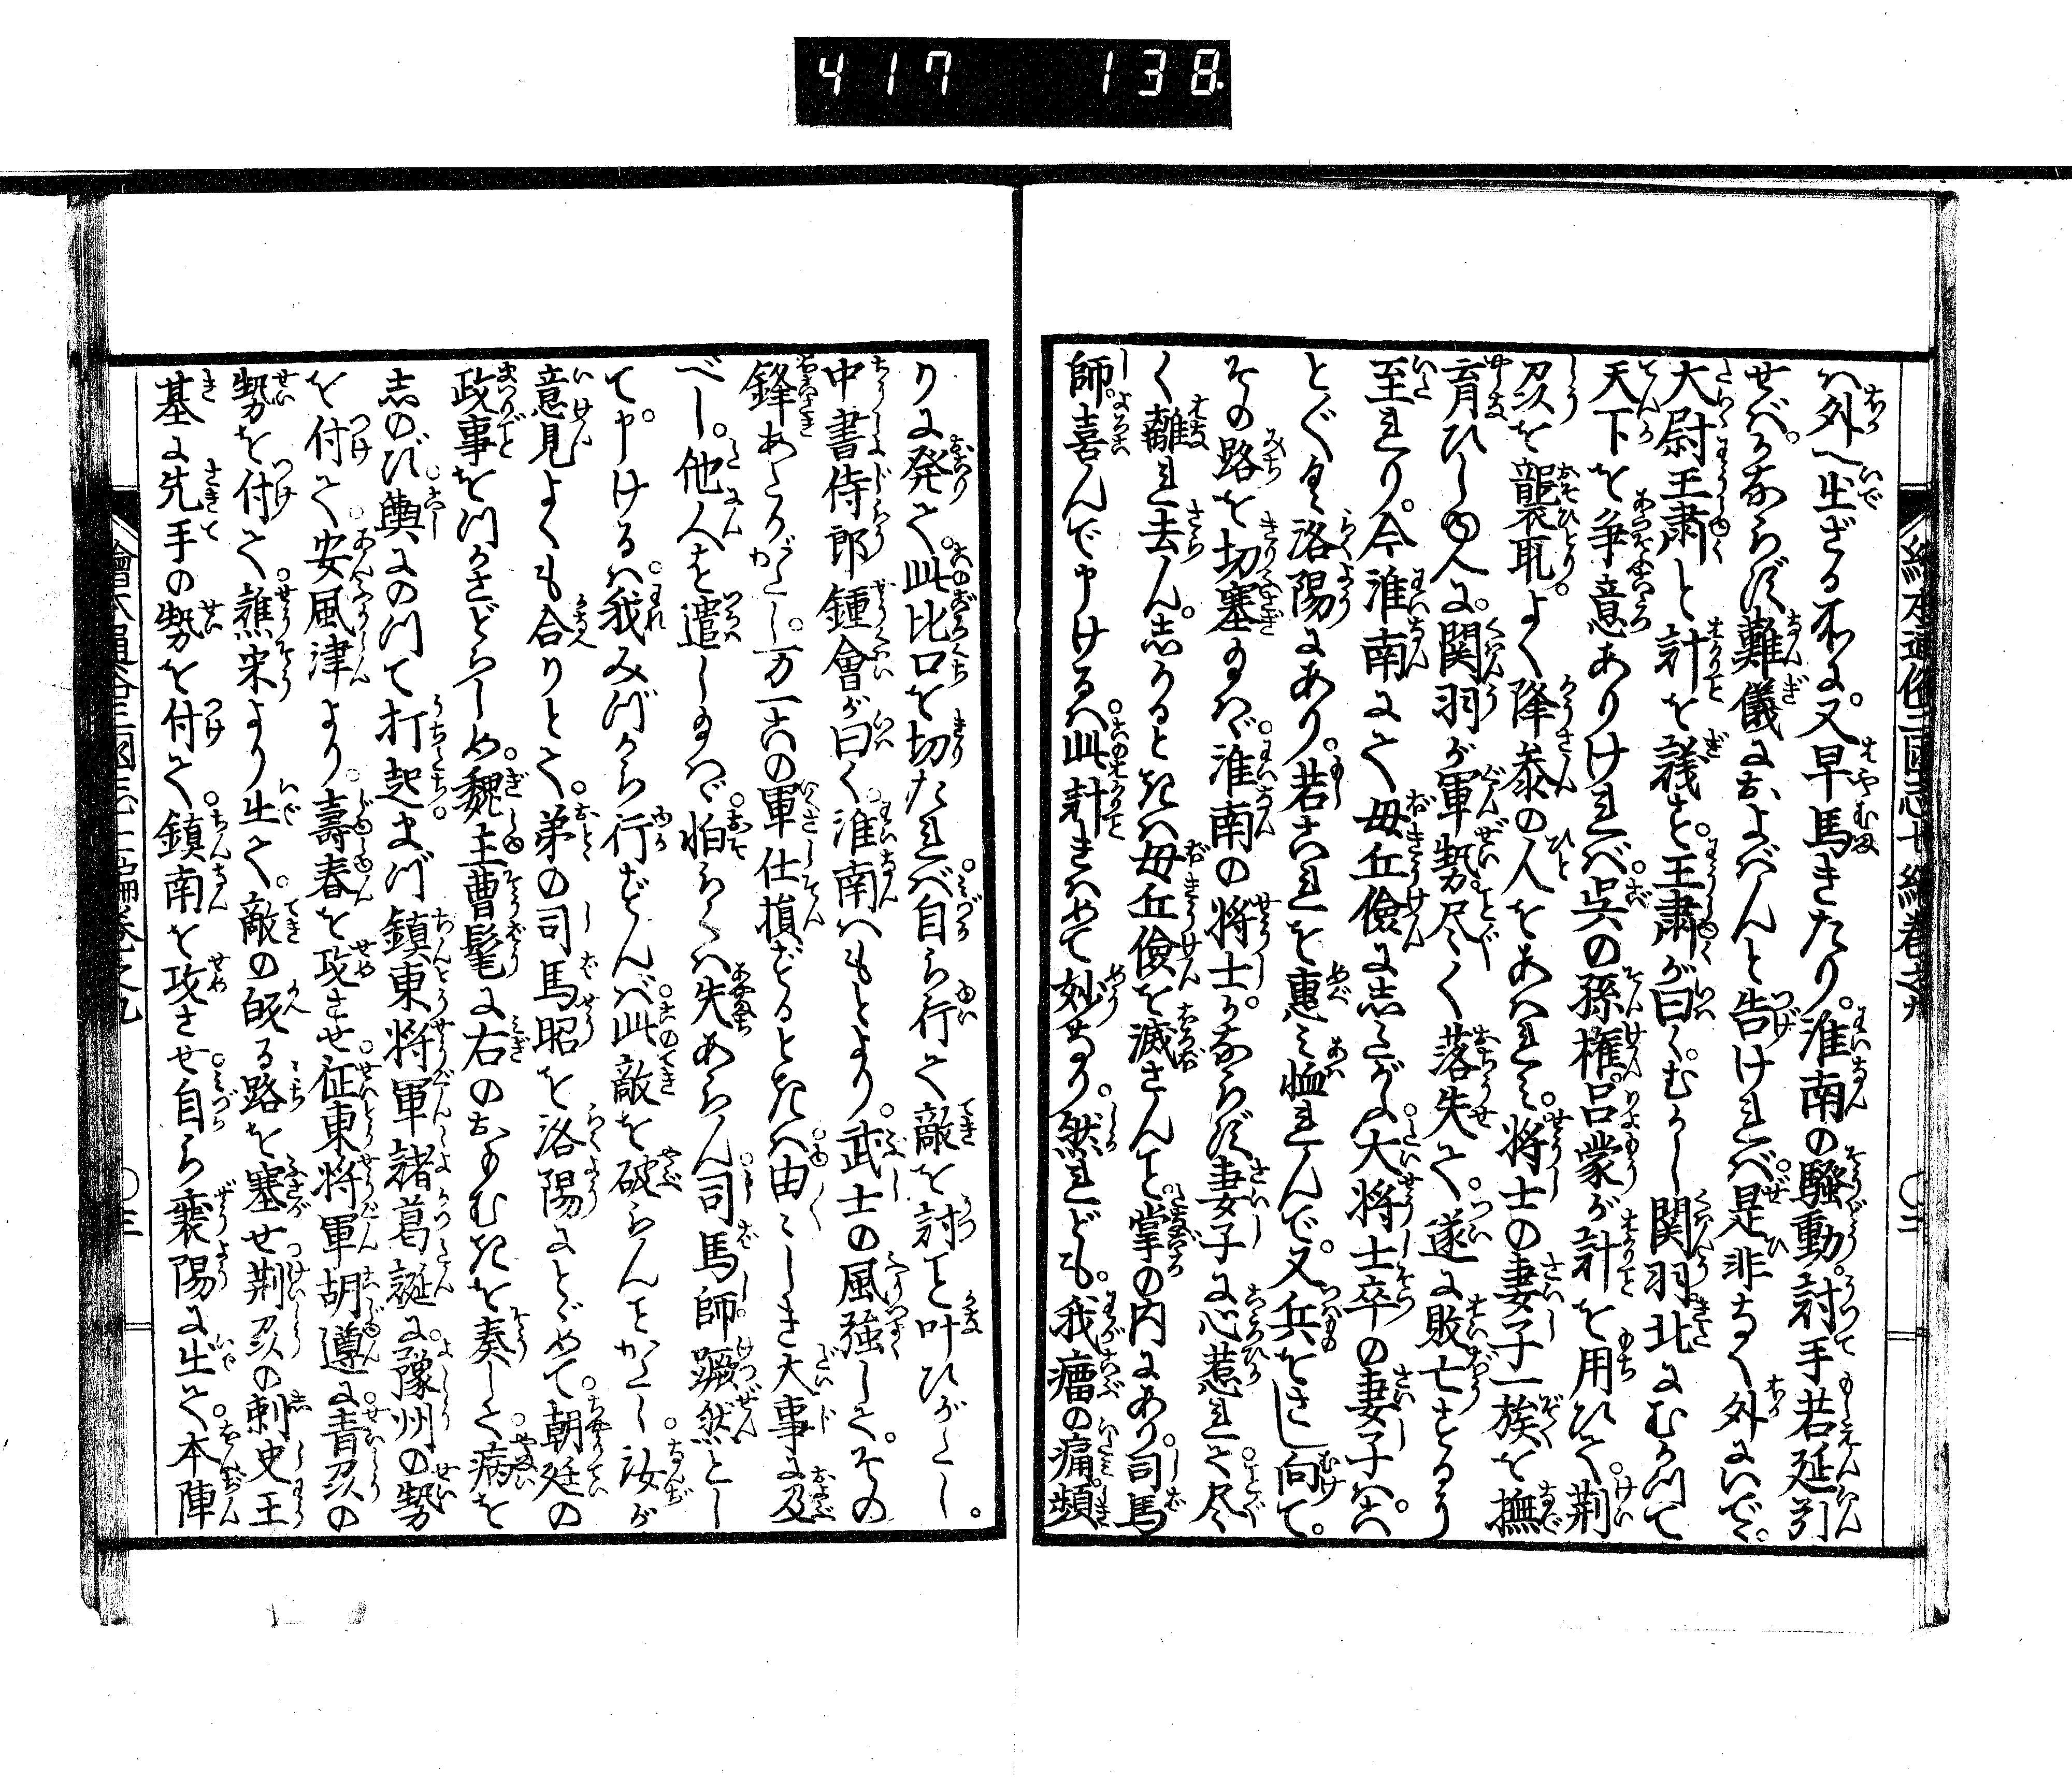 417 138
は外へ出ざる不に。又早馬きたり。淮南の騒動。討手若延引
せば。かならず難儀におよばんと告ければ。是非なく外にいで。
大尉王粛と計を議す。王粛が曰く。むかし関羽北にむかつて
天下を争意ありければ。呉の孫権。呂蒙が計を用ひて。荊
州を襲取。よく降参の人をあはれみ。将士の妻子一族を撫
育ひしゆへに。関羽が軍勢。尽く落失て。遂に敗亡するに
至れり。今淮南にて毋丘倹にしたがふ。大将士卒の妻子は。
とく〲洛陽にあり。若これを惠み恤れんで。又兵をさし向て。
その路を切塞給はゞ。淮南の将士。かならず妻子に心惹れて。尽
く離れ去ん。しかるときは毋丘倹を滅さんこと。掌の内にあり。司馬
師。喜んで申けるは。此計きはめて妙なり。然れども。我瘤の痛。頻
りに発て。此比口を切たれば。自ら行て敵を討こと叶ひがたし。
中書侍郎鍾會が曰く。淮南はもとより。武士の風強して。その
鋒あたりがたし。万一此の軍仕損ずるときは。由々しき大事に及
べし。他人を遣し給はゞ。怕らくは失あらん。司馬師。蹶然として
て申けるは。我みづから行ずんば。此敵を破らんことかたし。汝が
意見よくも合りとて。弟の司馬昭を洛陽にとゞめて。朝廷の
政事をつかさどらしめ。魏主曹髦に右のおもむきを奏して。病を
志のび。輿にのつて打起。まづ鎮東将軍諸葛誕に。豫州の勢
を付て。安風津より。壽春を攻させ。征東将軍胡遵に。青州の
勢を付て。譙宋より出て。敵の皈る路を塞せ。荊州の刺史王
基に先手の勢を付て。鎮南を攻させ。自ら襄陽に出て。本陣